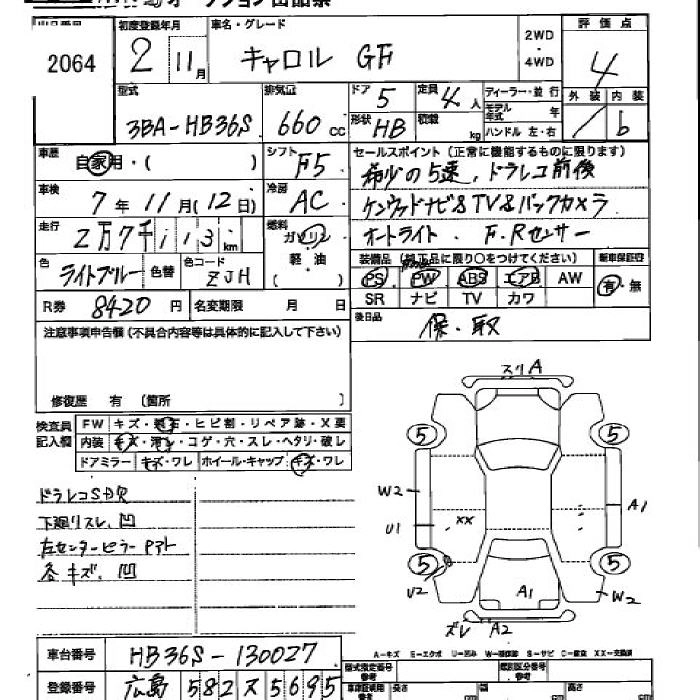 出品番号 初度登録年月 車名・グレード 2WD・4WD 評価点
2064 2 11月 キャロル GF 4
型式 排気量 ドア 定員 ディーラー・並行 外装 内装
3BA-HB36S 660cc 5 4人 モデル年式 年 / b
形状 HB 積載 kg ハンドル 左・右
車歴 自家用・( ) シフト F5 セールスポイント(正常に機能するものに限ります)
希少の5速、ドラレコ前後
車検 7年11月(12日) 冷房 AC ケンウッドナビ&TV&バックカメラ
走行 2万7千113km 燃料 ガソリン オートライト、F.Rセンサー
軽・油 ( )
色 ライトブルー 色替 色コード ZJH
装備品(純正品に限り○をつけてください) 新車保証書
PS PW ABS エアB AW 有・無
SR ナビ TV カワ
R券 8420円 名変期限 月 日 後日品 保・取
注意事項申告欄(不具合内容等は具体的に記入して下さい)
修復歴 有 (箇所 )
検査員記入欄 FW キズ・飛石・ヒビ割・リペア跡・X要
内装 キズ・汚レ・コゲ・穴・スレ・ヘタリ・破レ
ドアミラー キズ・ワレ ホイール・キャップ キズ・ワレ
ドラレコSD欠
下廻リスレ、凹
左センターピラーPアト
各キズ、凹
スリA
5 5
W2 A1
U1 XX
5 5
U2 A1 W2
ズレ A2
A-キズ E-エクボ U-凹み W-補修跡 S-サビ C-腐食 XX-交換済
車台番号 HB36S-130027 型式指定番号 参考 類別区分番号 参考
登録番号 広島 582 ス 5695 車庫証明用 参考 長さ 幅 高さ